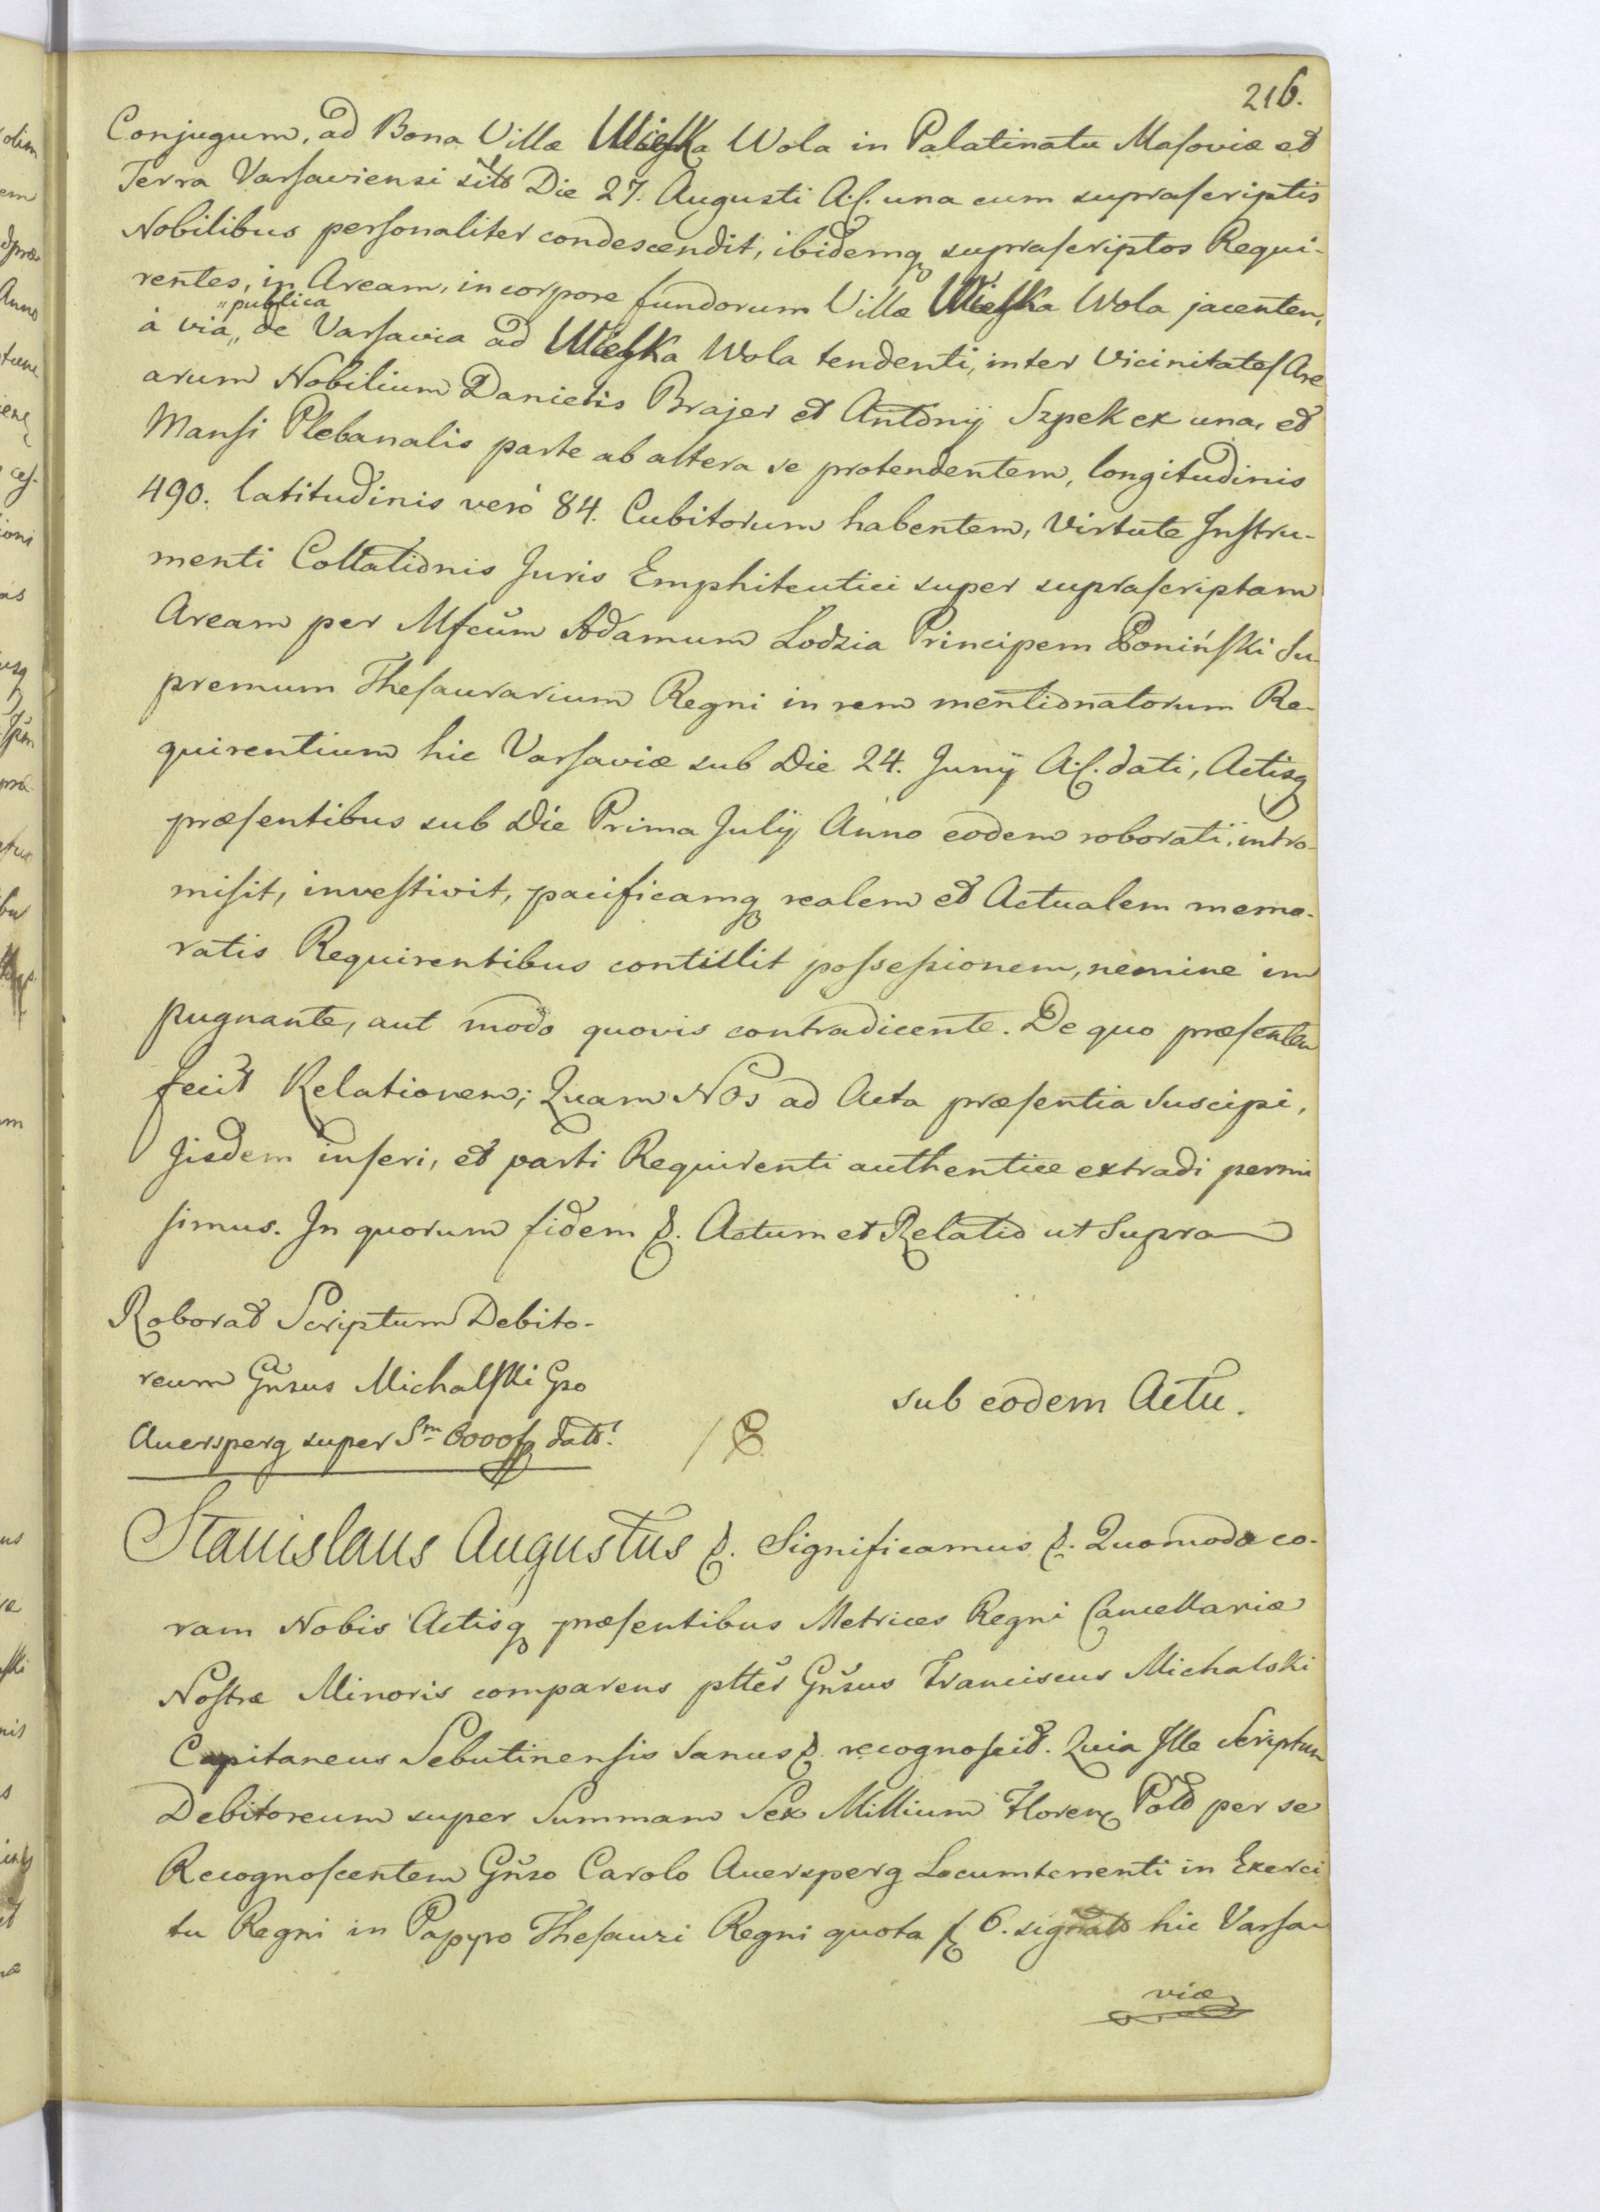 216.
Conjugum, ad Bona Villæ Wielka Wola in Palatinatu Masoviæ et
Terra Varsaviensi sito Die 27. Augusti A. C. una cum suprascriptis
Nobilibus personaliter condescendit, ibidemq suprascriptos Requi-
rentes, in Aream, in corpore fundorum Villæ Wielka Wola jacentem,
à via publica de Varsavia ad Wielka Wola tendenti, inter Vicinitates Are
arum Nobilium Danielis Brajer et Antonij Szpek ex una, et
Mansi Plebanalis parte ab altera se protendentem, longitudinis
490. latitudinis verò 84. Cubitorum habentem, Virtute Instru-
menti Collationis Juris Emphiteutici super suprascriptam
Aream per Mfcum Adamum Lodzia Principem Poniński Su
premum Thesaurarium Regni in rem mentionatorum Re-
quirentium hic Varsaviæ sub Die 24. Junij A. C. dati, Actisq
præsentibus sub Die Prima Julij Anno eodem roborati, intro-
misit, investivit, pacificamq realem et Actualem memo-
ratis Requirentibus contulit possessionem, nemine im
pugnante, aut modo quovis contradicente. De quo præsentem
fecit Relationem; Quam Nos ad Acta præsentia Suscipi,
Jisdem inseri, et parti Requirenti authentice extradi permi
simus. In quorum fidem &. Actum et Relatio ut Supra
Roborat Scriptum Debito-
reum Gnsus Michalski Gso
Auersperg super Sm 6000 f dato.
sub eodem Actu.
Stanislaus Augustus &. Significamus &. Quomodo co-
ram Nobis Actisq præsentibus Metrices Regni Cancellariæ
Nostræ Minoris comparens pltter Gnsus Franciscus Michalski
Capitaneus Lebutinensis Sanus &. recognoscit. Quia Ille Scriptum
Debitoreum super Summam Sex Millium Floren Pol per se
Recognoscentem Gnso Carolo Auersperg Locumtenenti in Exerci
tu Regni in Papyro Thesauri Regni quota f 6. signato hic Varsa
viæ